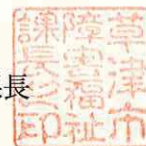 長
草津市
障害福祉
課長之印